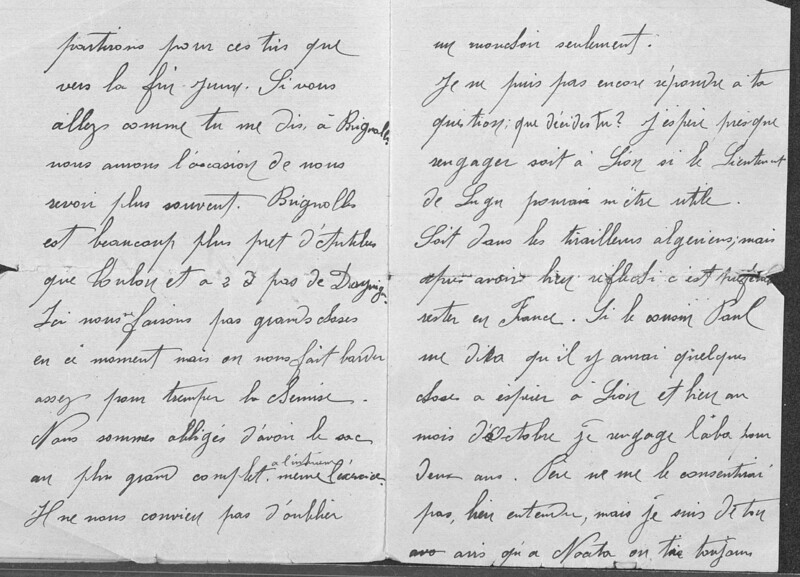 partirons pour ces tirs que
vers la fin Juin. Si vous
allez comme tu me dis, à Brignolles
nous aurons l'occasion de nous
revoir plus souvent. Brignolles
est beaucoup plus pret d'Antibes
que Toulon et a 2 pas de Draguig.
Ici nous ne faisons pas grand choses
en ce moment mais on nous fait barder
assez pour tremper la chemise.
Nous sommes obligés d'avoir le sac
au plus grand complet, même à l'intérieur l'exercice.
Il ne nous convien pas d'oublier
un mouchoir seulement.
Je ne puis pas encore répondre à ta
question; que décides tu? J'espère presque
rengager soit à Lion si le Lieutenant
de pourrai m'être utile.
Soit dans les tirailleurs algeriens; mais
après avoir bien reflechi c est
rester en France. Si le cousin Paul
me dira qu'il y aurai quelques
choses a espérer à Lion et bien au
mois d'Octobre je rengage là-bas pour
deux ans. Père ne me le consentirai
pas, bien entendu, mais je suis de ton
avis qu'a on toujours